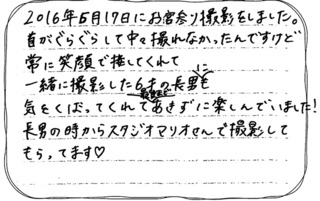 2016年5月17日にお宮参り撮影をしました。
首がぐらぐらして中々撮れなかったんですけど
常に笑顔で接してくれて
一緒に撮影した6才の長男にも
気をくばってくれてあきずに楽しんでいました!
長男の時からスタジオマリオさんで撮影して
もらってます♡